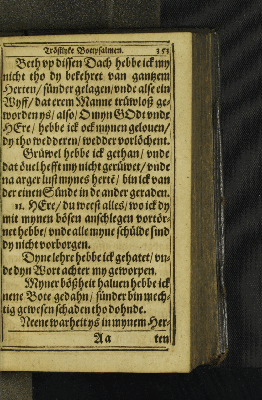 Tröstlyke Boetpsalmen. 353
Beth vp dissen Dach hebbe ick my
nicht tho dy bekehret van gantzem
Herten/ sünder gelagen/ vnde alse ein
Wyff/ dat erem Manne trüwloß ge-
worden ys/ also/ O myn GOdt vnde
HEre/ hebbe ick ock mynen gelouen/
dy tho wedderen/ wedder vorlöchent.
Grüwel hebbe ick gethan/ vnde
dat öuel hefft my nicht gerüwet/ vnde
na arger lust mynes hertē/ bin ick van
der einen Sünde in de ander geraden.
11. HEre/ du weest alles/ wo ick dy
mit mynen bösen anschlegen vortör-
net hebbe/ vnde alle myne schülde sind
dy nicht vorborgen.
Dyne lehre hebbe ick gehatet/ vn-
de dyn Wort achter my geworpen.
Myner bößheit haluen hebbe ick
nene Bote gedahn/ sünder bin mech-
tig gewesen schaden tho dohnde.
Neene warheit ys in mynem Her-
Aa ten